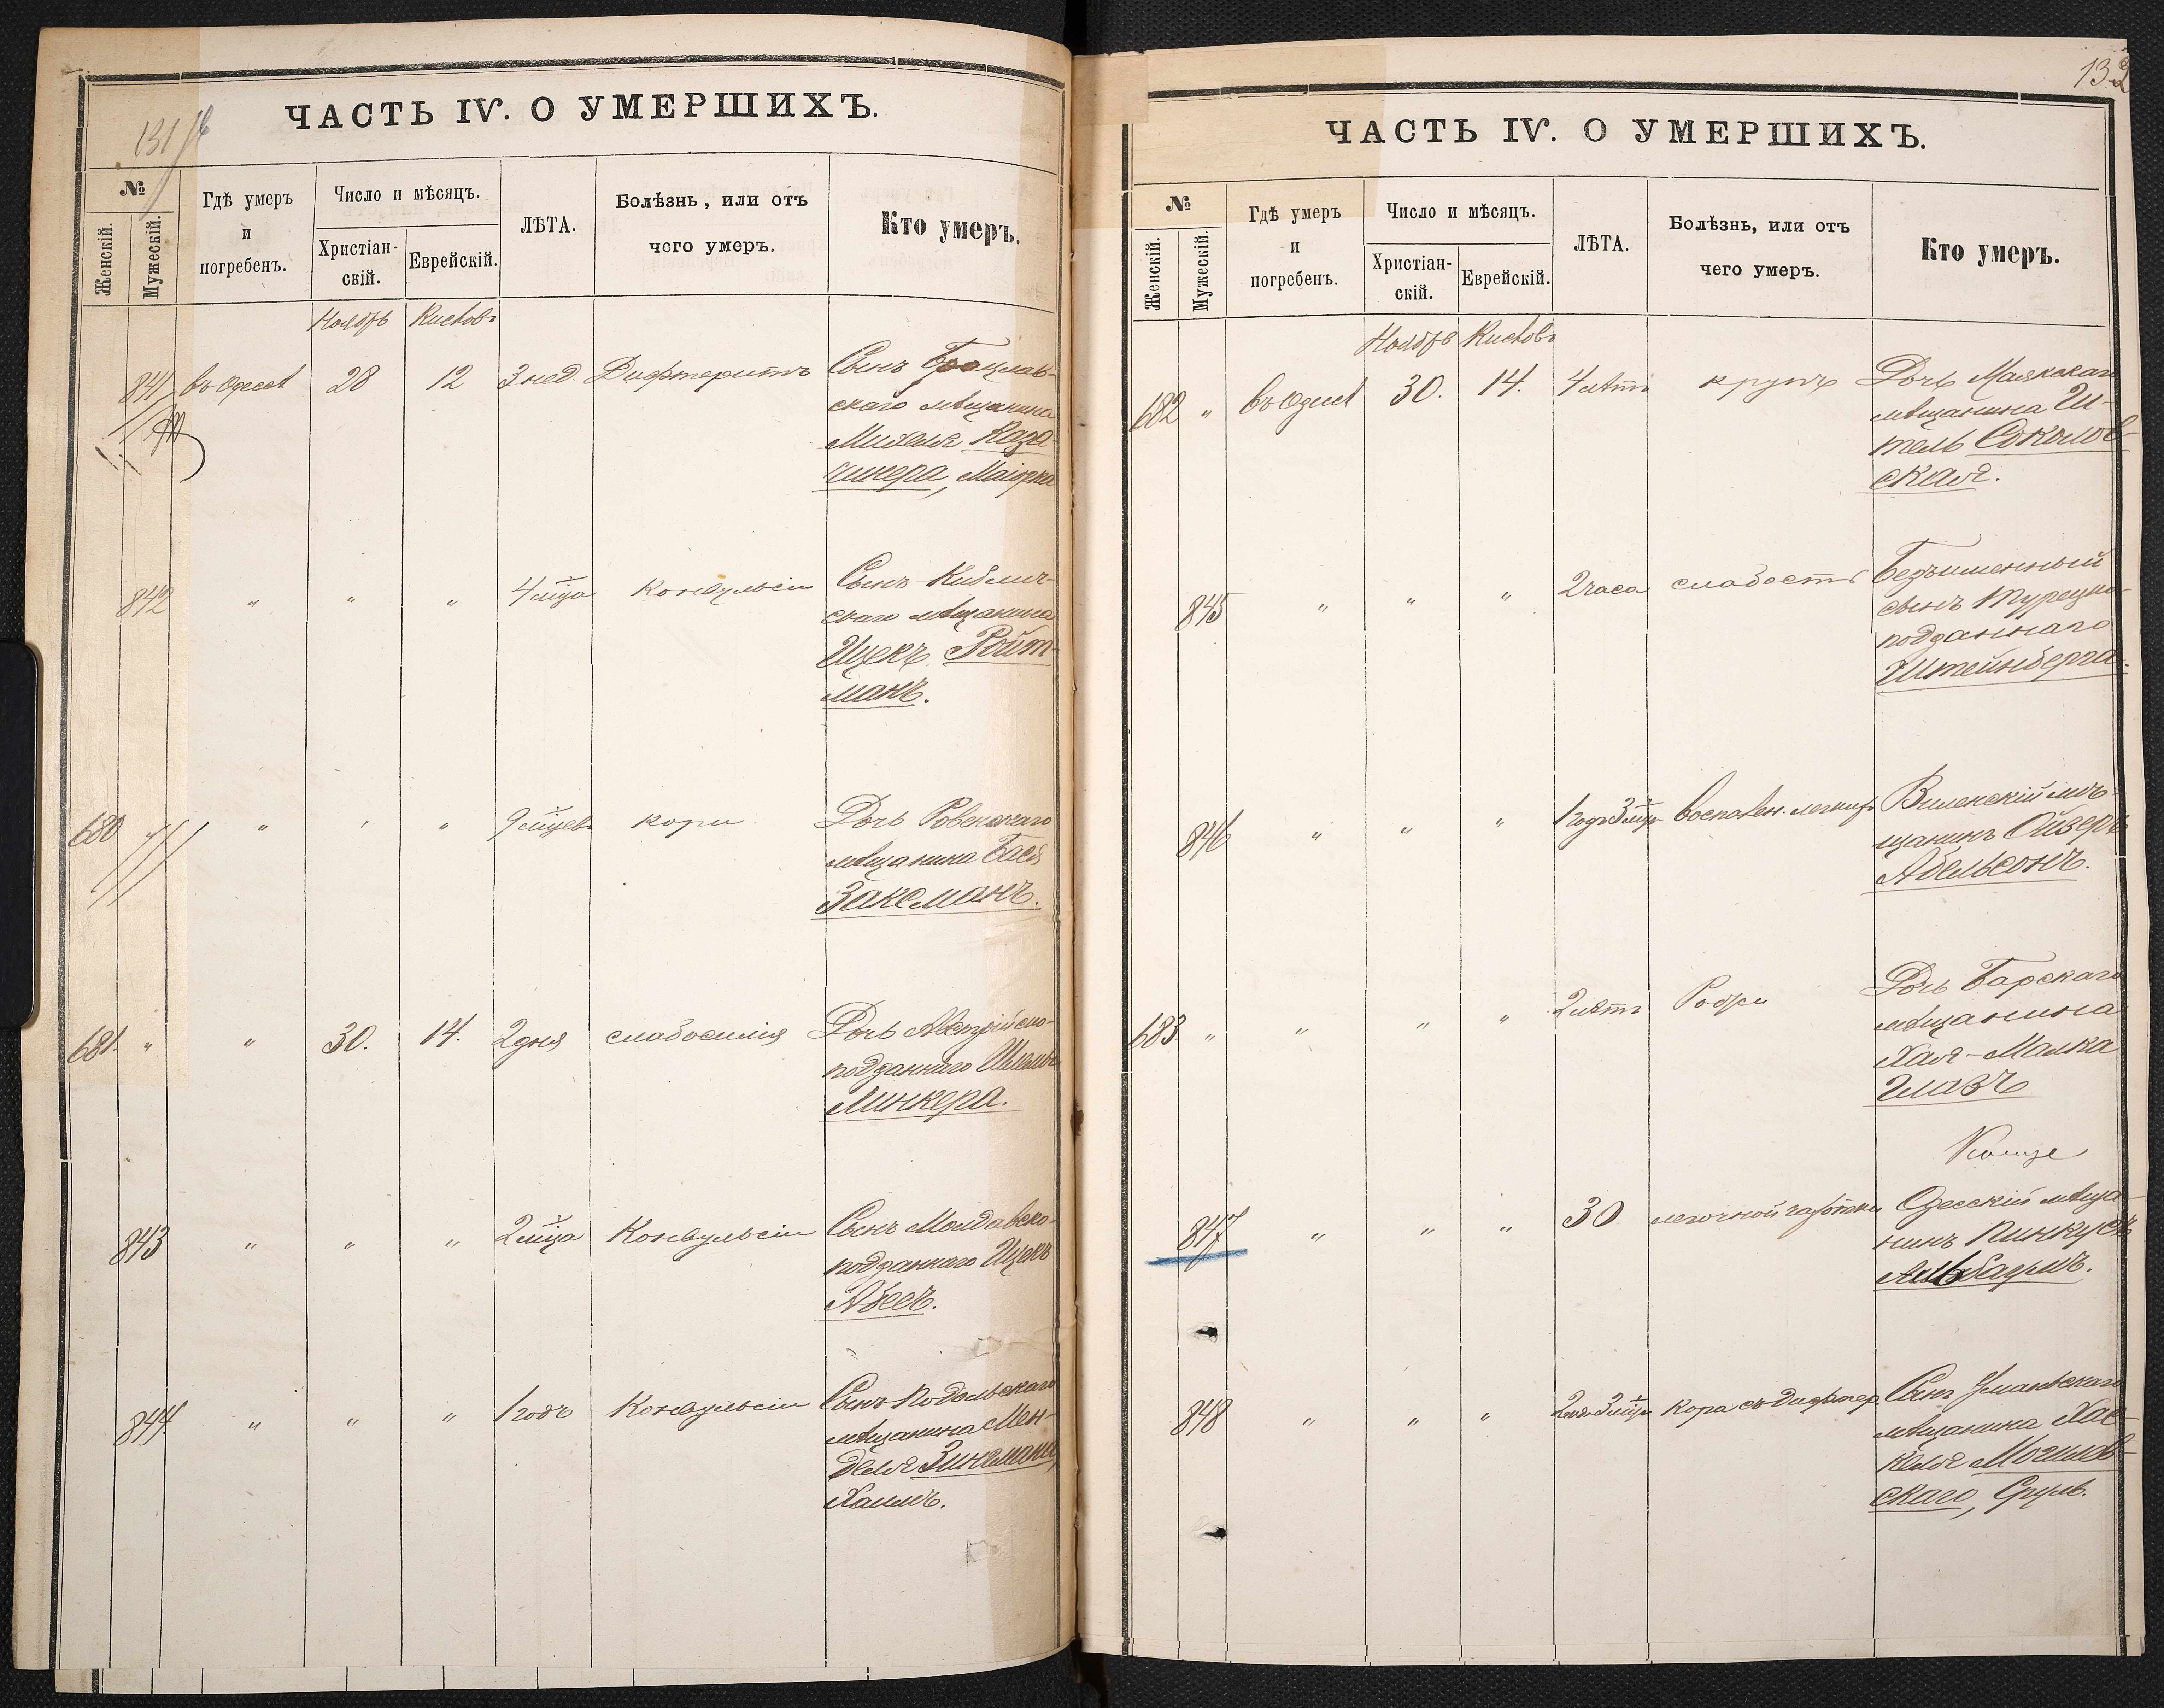 131
ЧАСТЬ IV. О УМЕРШИХЪ.
№
Женскій.
Мужескій.
Гдѣ умеръ
и
погребенъ.
Число и мѣсяцъ.
Христіан-
скій.
Еврейскій.
ЛѢТА.
Болѣзнь, или отъ
чего умеръ.
Кто умеръ.
Ноябрь Кислевъ
841 въ Одессѣ 28 12 3 нед. Дифтеритъ Сынъ Брацлав-
скаго мѣщанина
Михеля Каза-
чинера, Маіорка
842 " " " 4 мѣца Конвульсіи Сынъ Кублич-
скаго мѣщанина
Ицекъ Ройт-
манъ.
680 " " " 9 мѣцевъ кори Дочь Ровенскаго
мѣщанина Бася
Заксманъ.
681. " " 30. 14. 2 дня слабосилія Дочь Австрійско-
подданнаго
Линкера.
843 " " " 2 мѣца Конвульсіи Сынъ Молдавско-
подданнаго Ицекъ
Абесъ.
844 " " " 1 годъ Конвульсіи Сынъ Подольскаго
мѣщанина Мен-
деля Зингмана,
Хаимъ.
132
ЧАСТЬ IV. О УМЕРШИХЪ.
№
Женскій.
Мужескій.
Гдѣ умеръ
и
погребенъ.
Число и мѣсяцъ.
Христіан-
скій.
Еврейскій.
ЛѢТА.
Болѣзнь, или отъ
чего умеръ.
Кто умеръ.
Ноябрь Кислевъ
682 " въ Одессѣ 30. 14. 4 лѣтъ крупъ Дочь Маякскаго
мѣщанина Ги-
тель Соколов-
ская.
845 " " " 2 часа слабость Безъименный
сынъ Турецко-
подданнаго
Штейнберга.
846 " " " 1 годъ 3 мѣц. воспален. легкихъ Виленскій мѣ-
щанинъ Ойзеръ
Абельсонъ.
683 " " " " 2 лѣтъ Рожи Дочь Барскаго
мѣщанина
Хая-Малка
Глазъ
847 " " " 30 легочной чахотки Одесскій мѣща-
нинъ Пинкусъ
Альбаумъ.
848 " " " 2 года 3 мѣц. Кора съ дифтер. Сынъ Уманьскаго
мѣщанина Хас-
келя Могилев-
скаго, Сруль.